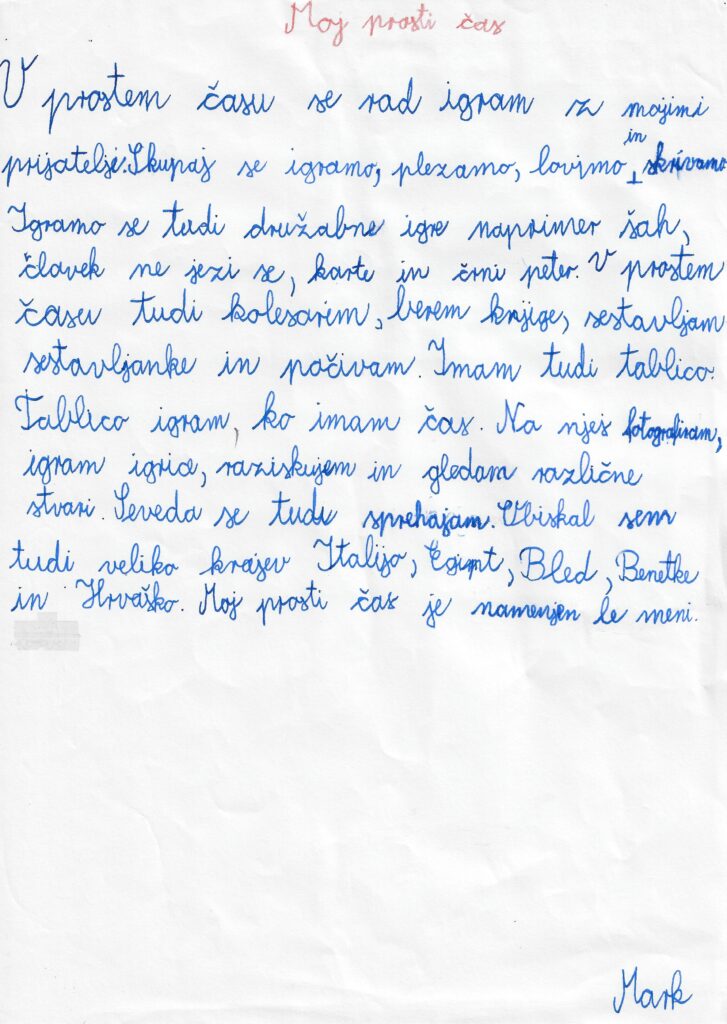 Moj prosti čas
V prostem času se rad igram z mojimi
prijatelji. Skupaj se igramo, plezamo, lovimo in skrivamo
Igramo se tudi družabne igre naprimer šah,
človek ne jezi se, karte in črni peter. V prostem
času tudi kolesarim, berem knjige, sestavljam
sestavljanke in počivam. Imam tudi tablico.
Tablico igram, ko imam čas. Na njej fotografiram,
igram igrice, raziskujem in gledam različne
stvari. Seveda se tudi sprehajam. Obiskal sem
tudi veliko krajev Italijo, Egipt, Bled, Benetke
in Hrvaško. Moj prosti čas je namenjen le meni.
Mark